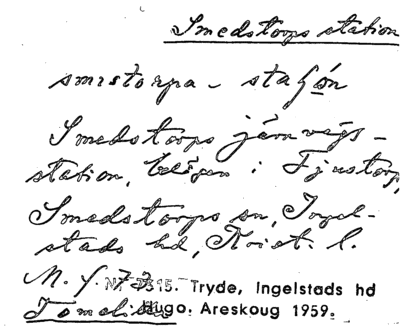 Smedstorps station
smɪstɔrpa - sta ʃọ́n
Smedstorps järnvägs-
station, belägen i Tjustorp,
Smedstorps sn, Ingel-
stads hd, Krist. l.
M. f. 73
Nr 2315. Tryde, Ingelstads hd
Tomelilla
Hugo. Areskoug 1959.